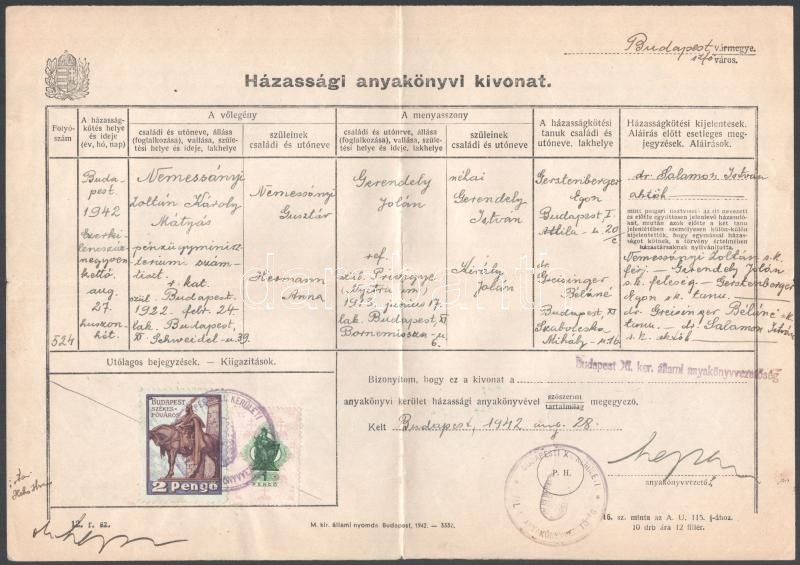 Budapest vármegye.
székesfőváros.
Házassági anyakönyvi kivonat.
Folyó-
szám
A házasság-
kötés helye
és ideje
(év, hó, nap)
A vőlegény
családi és utóneve, állása
(foglalkozása), vallása, szüle-
tési helye és ideje, lakhelye
szüleinek
családi és utóneve
A menyasszony
családi és utóneve, állása
(foglalkozása), vallása, szüle-
tési helye és ideje, lakhelye
szüleinek
családi és utóneve
A házasságkötési
tanuk családi és
utóneve, lakhelye
Házasságkötési kijelentések.
Aláírás előtt esetleges meg-
jegyzések. Aláírások.
524
Buda-
pest
1942
Ezerki-
lencszáz
negyven-
kettő
aug.
27.
huszon-
hét.
Nemessányi
Zoltán Károly
Mátyás
pénzügyminisz-
terium szám-
tiszt
r. kat.
szül. Budapest.
1922. febr. 24
lak. Budapest,
XI. Schweidel u. 39.
Nemessányi
Gusztáv
Hermann
Anna
Gerendely
Jolán
ref.
szül. Privigye
(Nyitra vm)
1923. junius 17.
lak. Budapest, XI
Bornemissza u.
6.
néhai
Gerendely
István
Király
Jolán
Gerstenberger
Egon
Budapest I.
Attila u. 20/c
dr.
Greisinger
Béláné
Budapest, XI
Szabolcska
Mihály u. 16.
dr. Salamon István
aktók
mint polgári tisztviselő az itt nevezett
és előtte együttesen jelenlevő házasuló-
kat, miután azok előtte a két tanu
jelenlétében személyesen külön-külön
kijelentették, hogy egymással házas-
ságot kötnek, a törvény értelmében
házastársaknak nyilvánította.
Nemessányi Zoltán s.k.
férj. — Gerendely Jolán
s.k. feleség — Gerstenberger
Egon s.k. tanu. —
dr. Greisinger Béláné s.k.
tanu. — dr. Salamon István
s.k. aktók
Utólagos bejegyzések. — Kiigazítások.
BUDAPEST
SZÉKES-
FŐVÁROS
2 Pengő
1
PENGŐ
Bizonyítom, hogy ez a kivonat a Budapest XI. ker. állami anyakönyvvezetőség
anyakönyvi kerület házassági anyakönyvével szószerint
tartalmilag megegyező.
Kelt Budapest, 1942 aug. 28.
P. H.
anyakönyvvezető.
12. r. sz.
M. kir. állami nyomda Budapest, 1942. — 3332.
16. sz. minta az A. U. 115. §-ához.
10 drb ára 12 fillér.